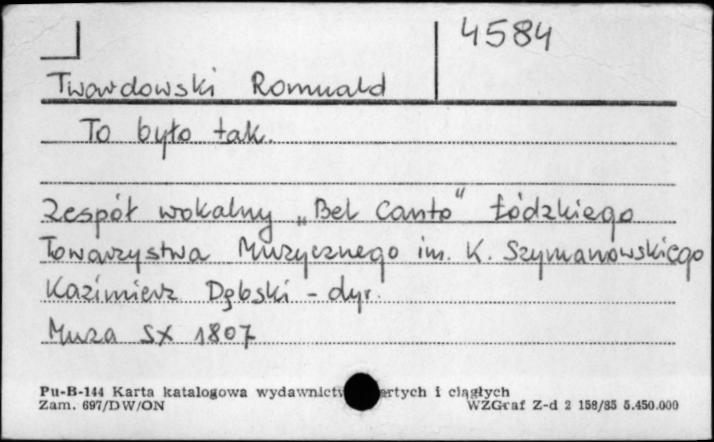 4584
Twardowski Romuald
To było tak.
Zespół wokalny „Bel Canto" Łódzkiego
Towarzystwa Muzycznego im. K. Szymanowskiego
Kazimierz Dębski - dyr.
Muza SX 1807
Pu-B-144 Karta katalogowa wydawnictw i ciągłych
Zam. 697/DW/ON WZGraf Z-d 2 158/85 5.450.000